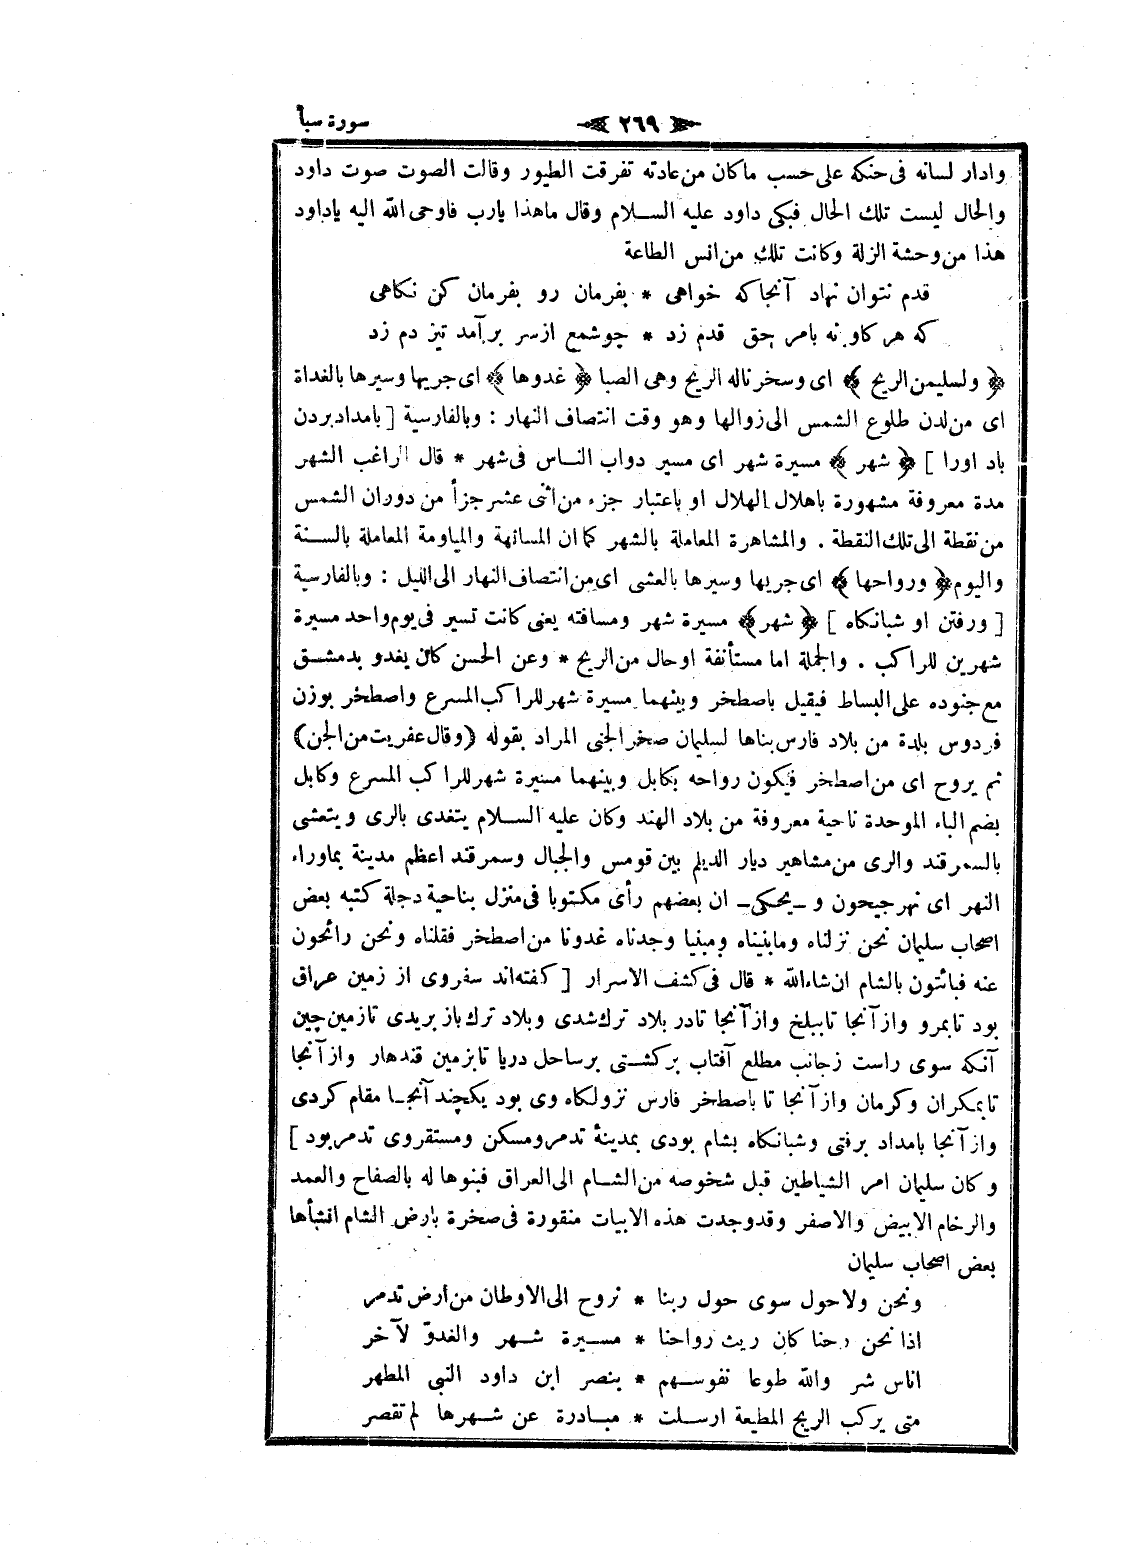 سورة سبأ
﴿ ٢٦٩ ﴾
وادار لسانه فى حنكه على حسب ماكان من عادته تفرقت الطيور وقالت الصوت صوت داود
والحال ليست تلك الحال فبكى داود عليه السلام وقال ماهذا يارب فاوحى الله اليه ياداود
هذا من وحشة الزلة وكانت تلك من انس الطاعة
قدم نتوان نهاد آنجاكه خواهى * بفرمان رو بفرمان كن نكاهى
كه هر كاو نه بامر حق قدم زد * چوشمع ازسر برآمد تيز دم زد
﴿ ولسليمن الريح ﴾ اى وسخر ناله الريح وهى الصبا ﴿ غدوها ﴾ اى جريها وسيرها بالغداة
اى من لدن طلوع الشمس الى زوالها وهو وقت انتصاف النهار : وبالفارسية [ بامداد بردن
باد اورا ] ﴿ شهر ﴾ مسيرة شهر اى مسير دواب الناس فى شهر * قال الراغب الشهر
مدة معروفة مشهورة باهلال الهلال او باعتبار جزء من اثنى عشر جزأ من دوران الشمس
من نقطة الى تلك النقطة . والمشاهرة المعاملة بالشهر كما ان المسانهة والمياومة المعاملة بالسنة
واليوم ﴿ ورواحها ﴾ اى جريها وسيرها بالعشى اى من انتصاف النهار الى الليل : وبالفارسية
[ ورفتن او شبانكاه ] ﴿ شهر ﴾ مسيرة شهر ومسافته يعنى كانت تسير فى يوم واحد مسيرة
شهرين للراكب . والجملة اما مستأنفة او حال من الريح * وعن الحسن كان يغدو بدمشق
مع جنوده على البساط فيقيل باصطخر وبينهما مسيرة شهر للراكب المسرع واصطخر بوزن
فردوس بلدة من بلاد فارس بناها لسليمان صخر الجنى المراد بقوله (وقال عفريت من الجن)
ثم يروح اى من اصطخر فيكون رواحه بكابل وبينهما مسيرة شهر للراكب المسرع وكابل
بضم الباء الموحدة ناحية معروفة من بلاد الهند وكان عليه السلام يتغدى بالرى ويتعشى
بالسمرقند والرى من مشاهير ديار الديلم بين قومس والجبال وسمرقند اعظم مدينة بماوراء
النهر اى نهر جيحون و ـ يحكى ـ ان بعضهم رأى مكتوبا فى منزل بناحية دجلة كتبه بعض
اصحاب سليمان نحن نزلناه ومابنيناه ومبنيا وجدناه غدونا من اصطخر فقلناه ونحن رائحون
عنه فبائتون بالشام ان شاء الله * قال فى كشف الاسرار [ كفته‌اند سفروى از زمين عراق
بود تابمرو واز آنجا تاببلخ واز آنجا تادر بلاد ترك شدى وبلاد ترك باز بريدى تازمين چين
آنكه سوى راست زجانب مطلع آفتاب بركشتى برساحل دريا تابزمين قندهار واز آنجا
تابمكران وكرمان واز آنجا تا باصطخر فارس نزولكاه وى بود يكچند آنجا مقام كردى
واز آنجا بامداد برفتى وشبانكاه بشام بودى بمدينۀ تدمر ومسكن ومستقروى تدمر بود ]
وكان سليمان امر الشياطين قبل شخوصه من الشام الى العراق فبنوها له بالصفاح والعمد
والرخام الابيض والاصفر وقدوجدت هذه الابيات منقورة فى صخرة بارض الشام انشأها
بعض اصحاب سليمان
ونحن ولاحول سوى حول ربنا * نروح الى الاوطان من أرض تدمر
اذا نحن رحنا كان ريث رواحنا * مسيرة شهر والغدوّ لآخر
اناس شر والله طوعا نفوسهم * بنصر ابن داود النبى المطهر
متى يركب الريح المطيعة ارسلت * مبادرة عن شهرها لم تقصر